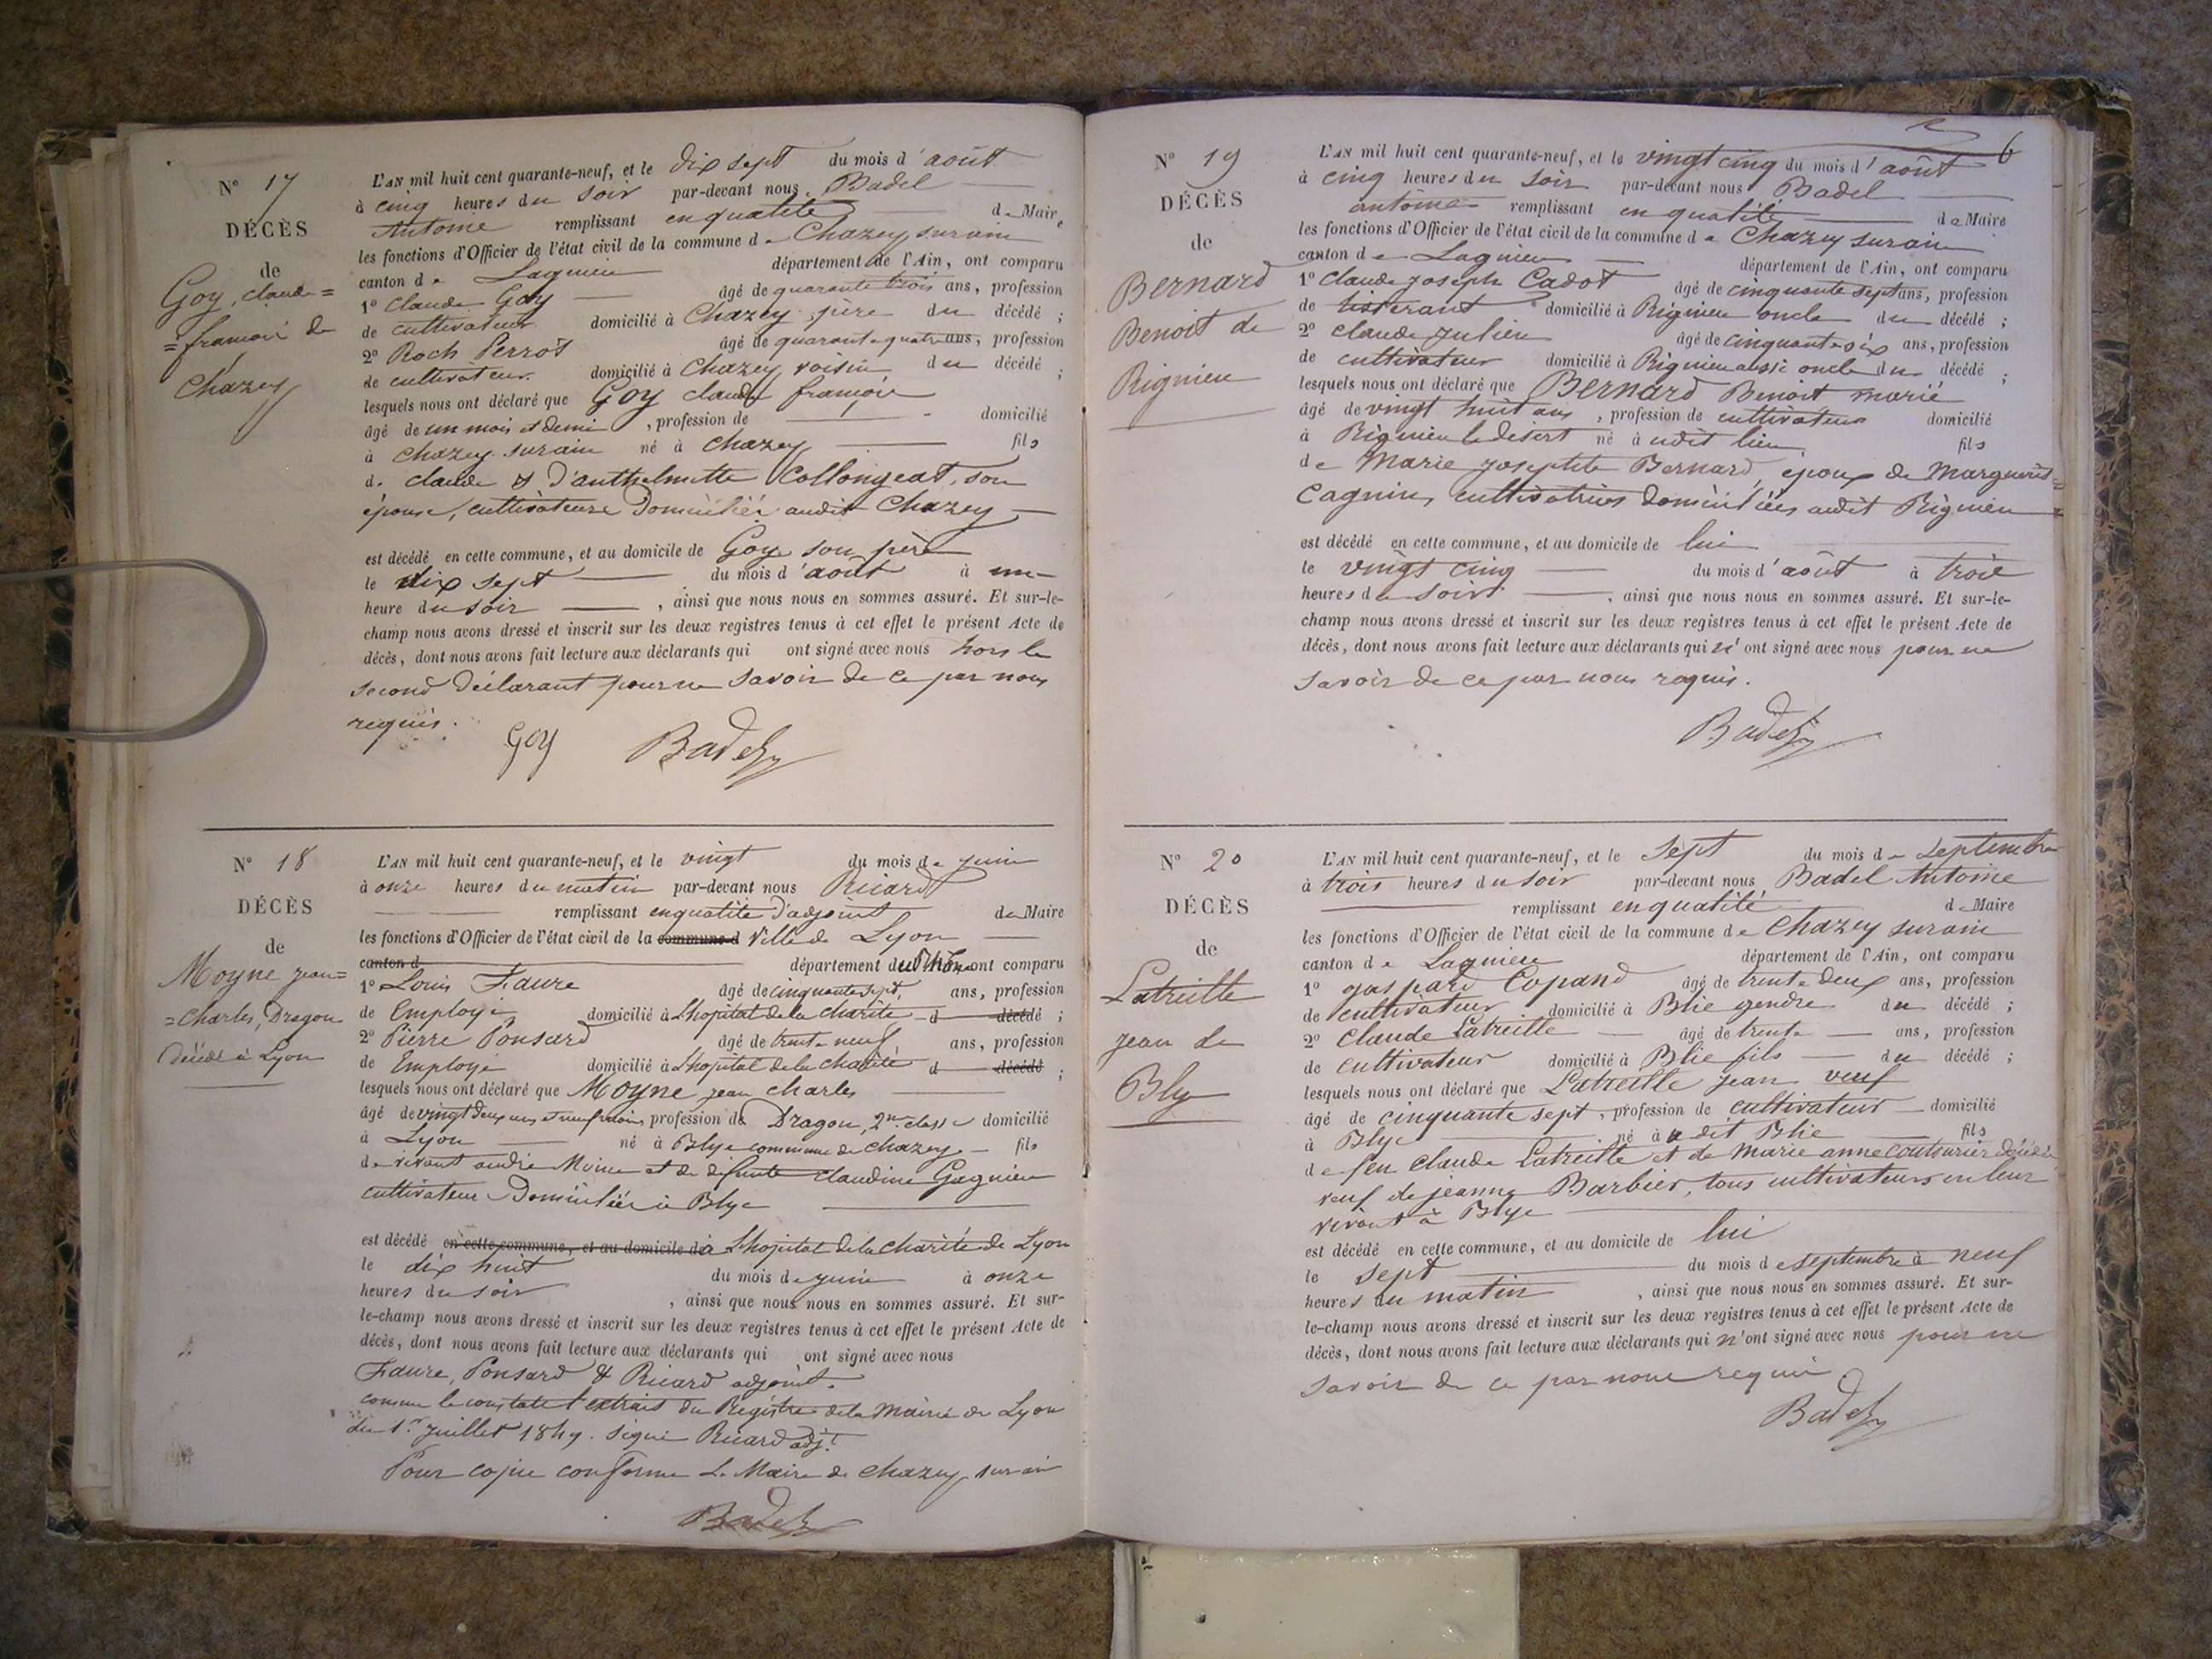 N° 17
DÉCÈS
de
Goy, claude=
=francois de
Chazey
L'AN mil huit cent quarante-neuf, et le dix sept du mois d'août
à cinq heures du soir par-devant nous Badel
Antoine remplissant en qualité de Maire
les fonctions d'Officier de l'état civil de la commune de Chazey surain
canton de Lagnieu département de l'Ain, ont comparu
1° Claude Goy âgé de quarante trois ans, profession
de cultivateur domicilié à Chazey père du décédé ;
2° Roch Perrot âgé de quarante quatre ans, profession
de cultivateur domicilié à Chazey voisin du décédé ;
lesquels nous ont déclaré que Goy claude francois
âgé de un mois et demi, profession de domicilié
à Chazey surain né à Chazey fils
de claude & d'anthelmette Collongeat, son
épouse, cultivateurs Domiciliés audit Chazey
est décédé en cette commune, et au domicile de Goy son père
le dix sept du mois d'août à une
heure du soir, ainsi que nous nous en sommes assuré. Et sur-le-
champ nous avons dressé et inscrit sur les deux registres tenus à cet effet le présent Acte de
décès, dont nous avons fait lecture aux déclarants qui ont signé avec nous hors le
second déclarant pour ne savoir de ce par nous
requis.
Goy Badel
N° 18
DÉCÈS
de
Moyne jean=
=Charles, Dragon
Décédé à Lyon
L'AN mil huit cent quarante-neuf, et le vingt du mois de juin
à onze heures du matin par-devant nous Ricard
remplissant en qualité d'adjoint de Maire
les fonctions d'Officier de l'état civil de la commune d Ville de Lyon
canton d département du Rhône ont comparu
1° Louis Faure âgé de cinquante sept, ans, profession
de Employé domicilié à L'hopital de la charité d décédé ;
2° Pierre Ponsard âgé de trente neuf ans, profession
de Employé domicilié à L'hopital de la charité d décédé ;
lesquels nous ont déclaré que Moyne jean Charles
âgé de vingt deux ans et neuf mois, profession de Dragon, 2me classe domicilié
à Lyon né à Blye commune de chazey fils
de vivant andré Moine et de défunte claudine Gagnieu
cultivateurs Domiciliés à Blye
est décédé en cette commune, et au domicile de à L'hopital de la charité de Lyon
le dix huit du mois de juin à onze
heures du soir, ainsi que nous nous en sommes assuré. Et sur-
le-champ nous avons dressé et inscrit sur les deux registres tenus à cet effet le présent Acte de
décès, dont nous avons fait lecture aux déclarants qui ont signé avec nous
Faure, Ponsard & Ricard adjoint.
comme le constate l'extrait du Registre de la Mairie de Lyon
du 1er juillet 1849. signé Ricard adjt
Pour copie conforme Le Maire de chazey surain
Badel
6
N° 19
DÉCÈS
de
Bernard
Benoit de
Rignieu
L'AN mil huit cent quarante-neuf, et le vingt cinq du mois d'août
à cinq heures du soir par-devant nous Badel
antoine remplissant en qualité de Maire
les fonctions d'Officier de l'état civil de la commune de Chazey surain
canton de Lagnieu département de l'Ain, ont comparu
1° Claude joseph Cadot âgé de cinquante sept ans, profession
de tisserant domicilié à Rignieu oncle du décédé ;
2° claude Julien âgé de cinquante six ans, profession
de cultivateur domicilié à Rignieu aussi oncle du décédé ;
lesquels nous ont déclaré que Bernard Benoit marié
âgé de vingt huit ans, profession de cultivateur domicilié
à Rignieu le desert né à udit lieu fils
de Marie josephte Bernard, epoux de Marguerite=
Cagnin, cultivatrices domiciliées audit Rignieu
est décédé en cette commune, et au domicile de lui
le vingt cinq du mois d'août à trois
heures du soir, ainsi que nous nous en sommes assuré. Et sur-le-
champ nous avons dressé et inscrit sur les deux registres tenus à cet effet le présent Acte de
décès, dont nous avons fait lecture aux déclarants qui n'ont signé avec nous pour ne
savoir de ce par nous requis.
Badel
N° 20
DÉCÈS
de
Latreille
jean de
Blye
L'AN mil huit cent quarante-neuf, et le Sept du mois de Septembre
à trois heures du soir par-devant nous Badel Antoine
remplissant en qualité d Maire
les fonctions d'Officier de l'état civil de la commune de Chazey surain
canton de Lagnieu département de l'Ain, ont comparu
1° gaspard Copand âgé de trente deux ans, profession
de cultivateur domicilié à Blie gendre du décédé ;
2° Claude Latreille âgé de trente ans, profession
de cultivateur domicilié à Blie fils du décédé ;
lesquels nous ont déclaré que Latreille jean veuf
âgé de cinquante sept, profession de cultivateur domicilié
à Blye né à u dit Blie fils
de feu Claude Latreille et de Marie anne couturier décédée
veuf de jeanne Barbier, tous cultivateurs en leur
vivant à Blye
est décédé en cette commune, et au domicile de lui
le sept du mois de septembre à neuf
heures du matin, ainsi que nous nous en sommes assuré. Et sur-
le-champ nous avons dressé et inscrit sur les deux registres tenus à cet effet le présent Acte de
décès, dont nous avons fait lecture aux déclarants qui n'ont signé avec nous pour ne
savoir de ce par nous requis
Badel